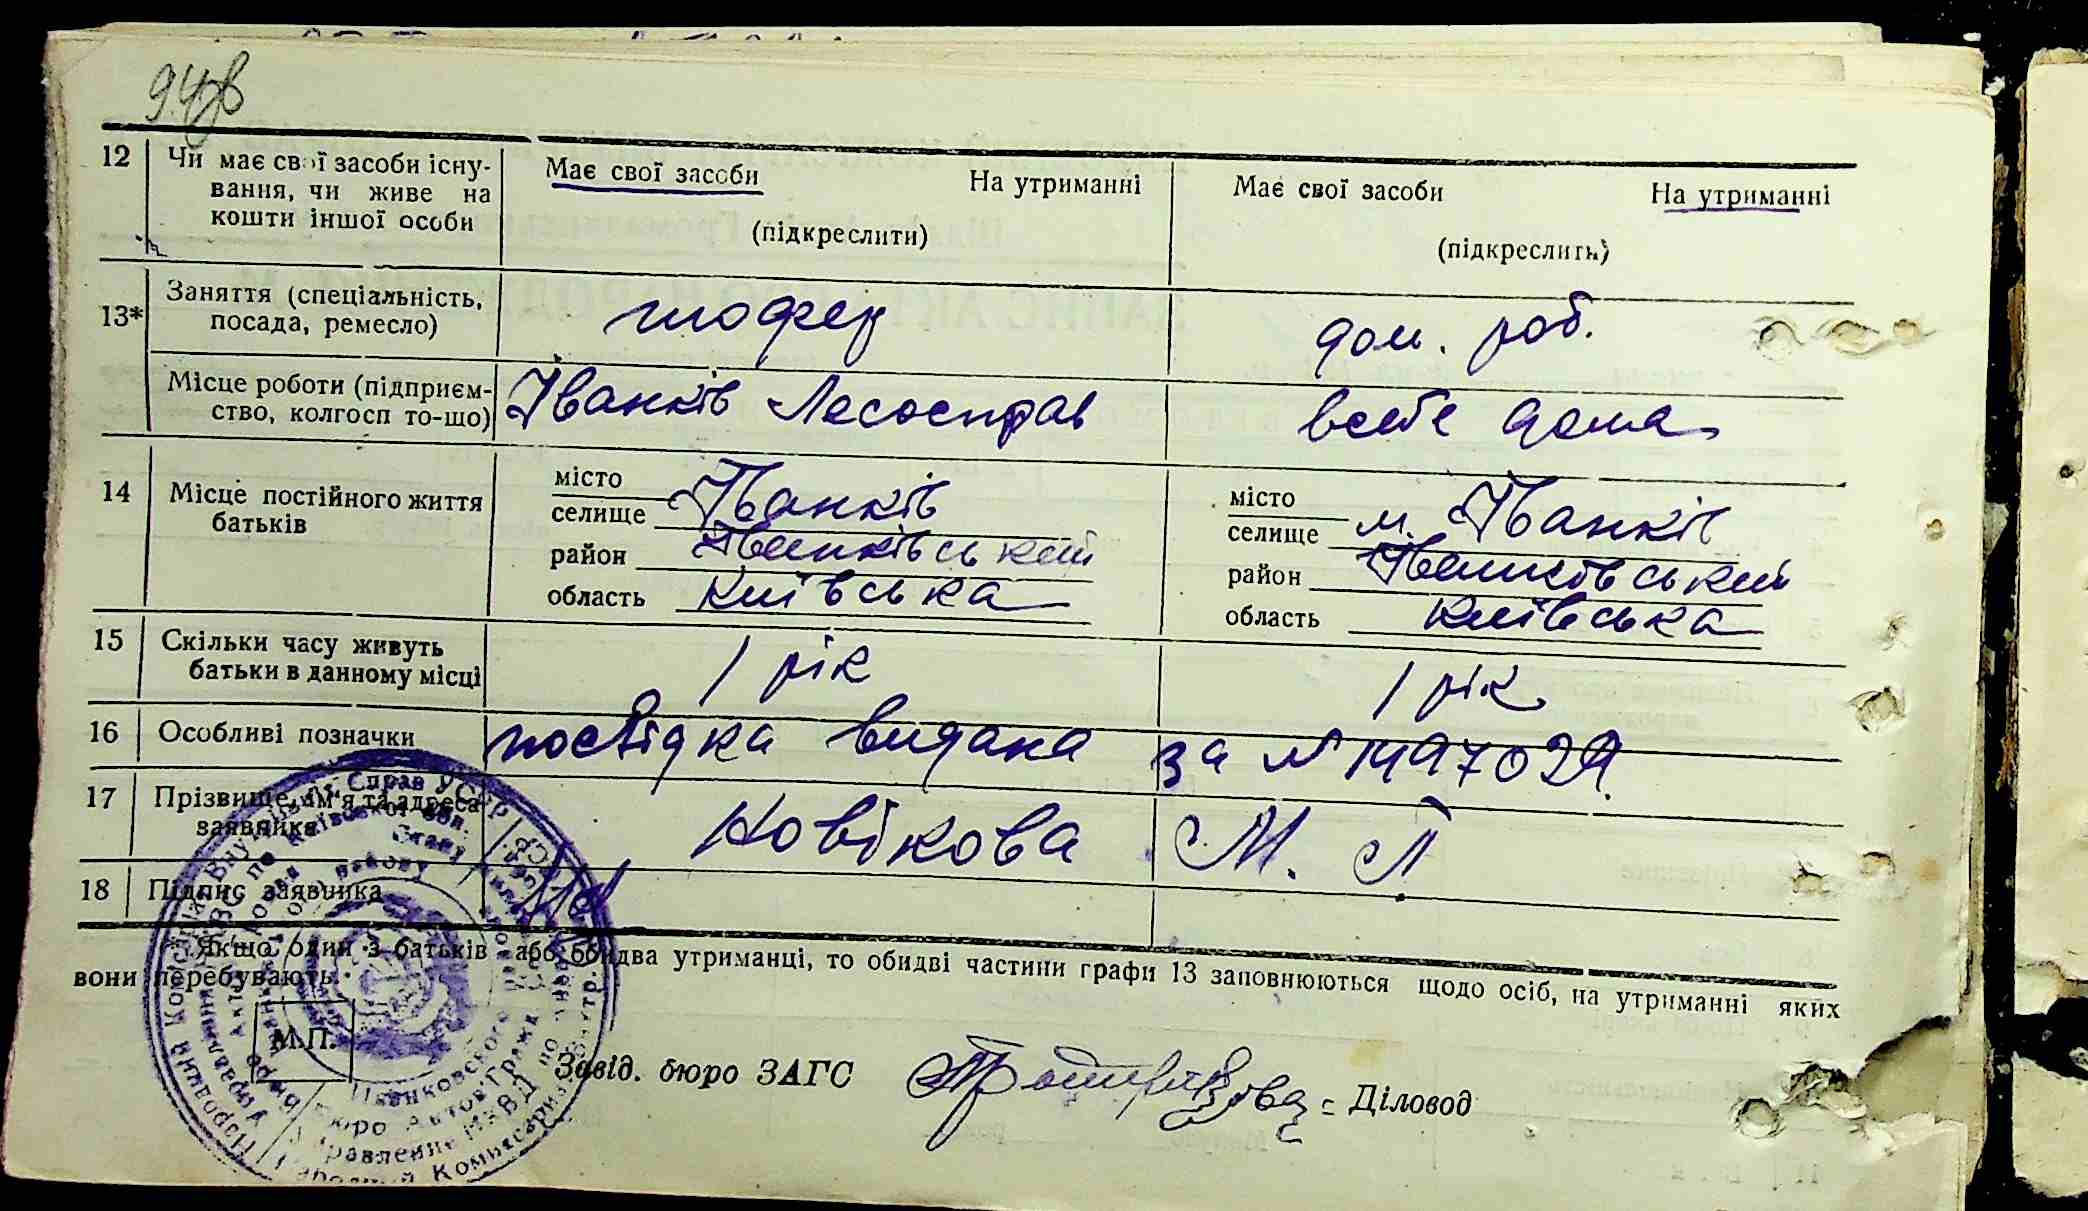 94зв
12 Чи має свої засоби існування, чи живе на кошти іншої особи Має свої засоби На утриманні (підкреслити) Має свої засоби На утриманні (підкреслить)
13* Заняття (спеціальність, посада, ремесло) шофер дом. роб.
Місце роботи (підприємство, колгосп то-що) Іванків Лесосправ всебе дома
14 Місце постійного життя батьків
місто селище Іванків місто селище м. Іванків
район Іванківський район Іванківський
область Київська область Київська
15 Скільки часу живуть батьки в данному місці 1 рік 1 рік
16 Особливі позначки посвідка видана за №
17 Прізвище, ім'я та адреса заявника Новікова М. Л
18 Підпис заявника
Якщо один з батьків або обидва утриманці, то обидві частини графи 13 заповнюються щодо осіб, на утриманні яких
вони перебувають.
М.П.
Завід. бюро ЗАГС Діловод